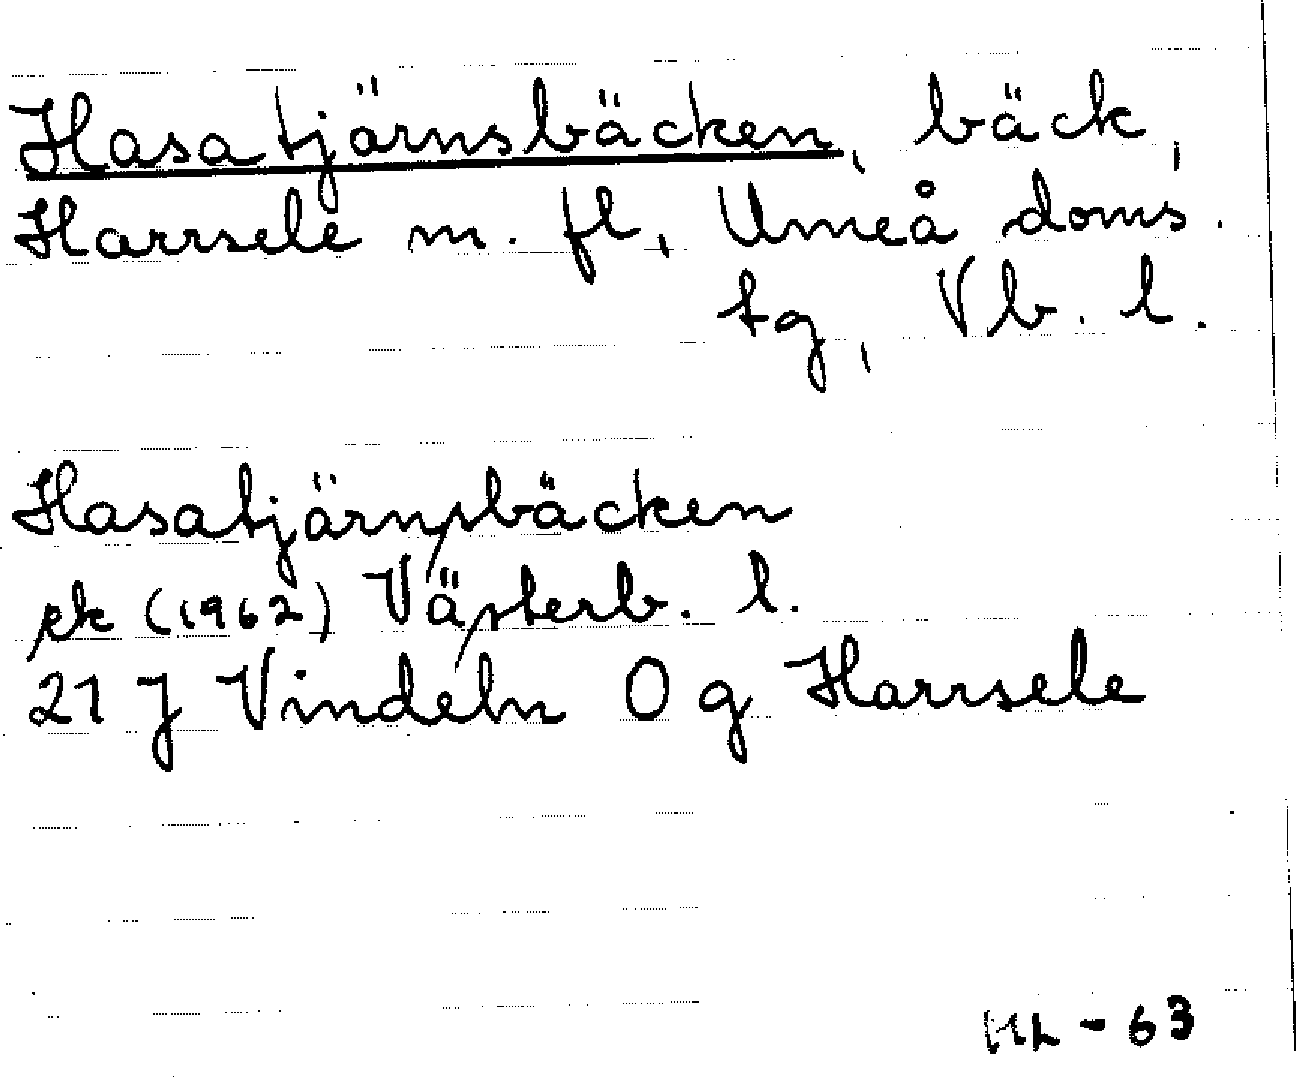 Hasatjärnsbäcken, bäck,
Harrsele m. fl, Umeå doms.
tg, Vb. l.
Hasatjärnsbäcken
ek (1962) Västerb. l.
21 J Vindeln 0 g Harrsele
- 63